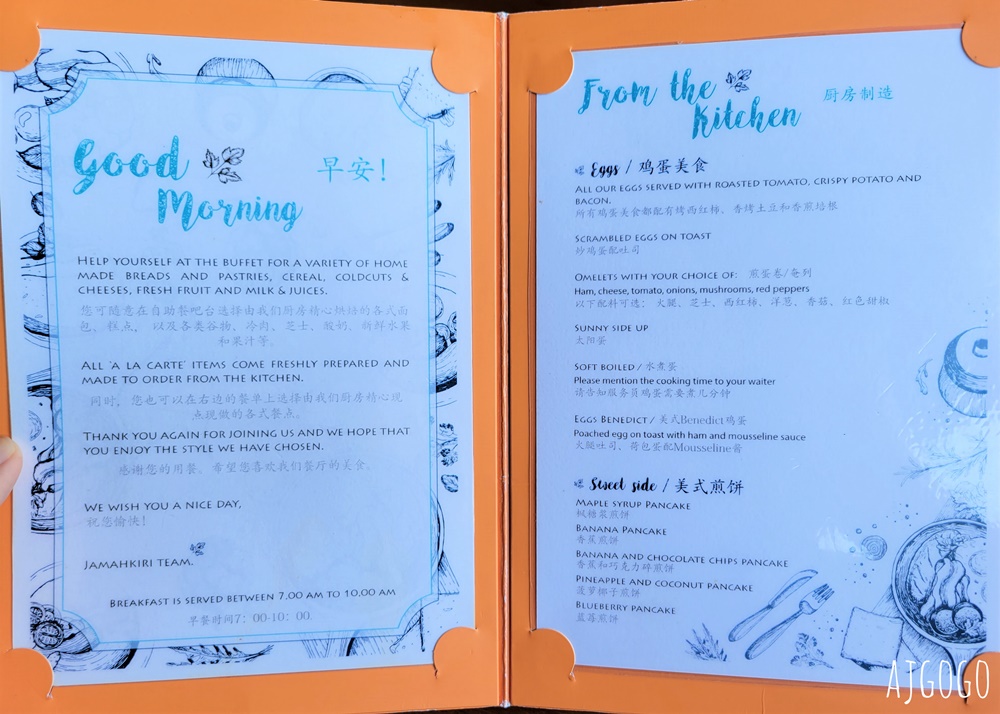 Good
早安!
Morning
HELP YOURSELF AT THE BUFFET FOR A VARIETY OF HOME
MADE BREADS AND PASTRIES, CEREAL, COLDCUTS &
CHEESES, FRESH FRUIT AND MILK & JUICES.
您可随意在自助餐吧台选择由我们厨房精心烘焙的各式面
包、糕点, 以及各类谷物、冷肉、芝士、酸奶、新鲜水果
和果汁等。
ALL 'A LA CARTE' ITEMS COME FRESHLY PREPARED AND
MADE TO ORDER FROM THE KITCHEN.
同时, 您也可以在右边的餐单上选择由我们厨房精心现
点现做的各式餐点。
THANK YOU AGAIN FOR JOINING US AND WE HOPE THAT
YOU ENJOY THE STYLE WE HAVE CHOSEN.
感谢您的用餐。希望您喜欢我们餐厅的美食。
WE WISH YOU A NICE DAY,
祝您愉快!
JAMAHKIRI TEAM.
BREAKFAST IS SERVED BETWEEN 7.00 AM TO 10.00 AM
早餐时间7: 00-10: 00.
From the
Kitchen
厨房制造
Eggs / 鸡蛋美食
ALL OUR EGGS SERVED WITH ROASTED TOMATO, CRISPY POTATO AND
BACON.
所有鸡蛋美食都配有烤西红柿、香烤土豆和香煎培根
SCRAMBLED EGGS ON TOAST
炒鸡蛋配吐司
OMELETS WITH YOUR CHOICE OF: 煎蛋卷/奄列
Ham, cheese, tomato, onions, mushrooms, red peppers
以下配料可选: 火腿、芝士、西红柿、洋葱、香菇、红色甜椒
SUNNY SIDE UP
太阳蛋
SOFT BOILED / 水煮蛋
Please mention the cooking time to your waiter
请告知服务员鸡蛋需要煮几分钟
EGGS BENEDICT / 美式Benedict鸡蛋
Poached egg on toast with ham and mousseline sauce
火腿吐司、荷包蛋配Mousseline酱
Sweet side / 美式煎饼
MAPLE SYRUP PANCAKE
枫糖浆煎饼
BANANA PANCAKE
香蕉煎饼
BANANA AND CHOCOLATE CHIPS PANCAKE
香蕉和巧克力碎煎饼
PINEAPPLE AND COCONUT PANCAKE
菠萝椰子煎饼
BLUEBERRY PANCAKE
蓝莓煎饼
AJGOGO